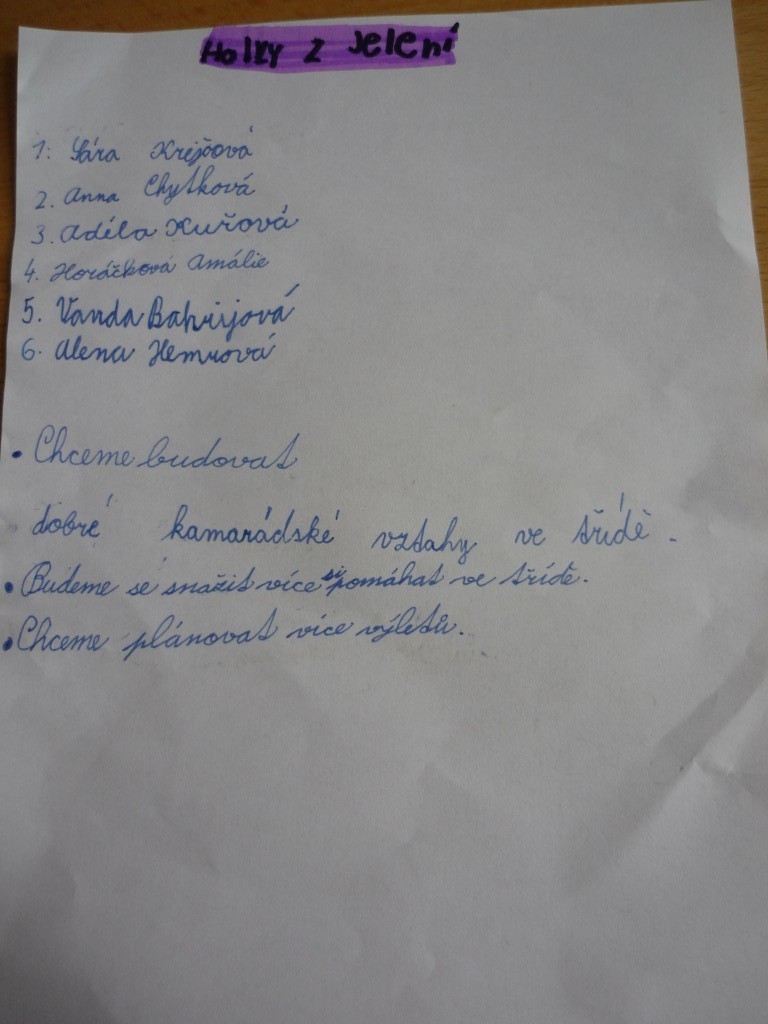 Holky z Jelení
1: Sára Krejčová
2. Anna Chytková
3. Adéla Kuřová
4. Horáčková Amálie
5. Vanda Bahrijová
6. Alena Hemrová
• Chceme budovat
dobré kamarádské vztahy ve třídě.
• Budeme se snažit více si pomáhat ve třídě.
• Chceme plánovat více výletů.